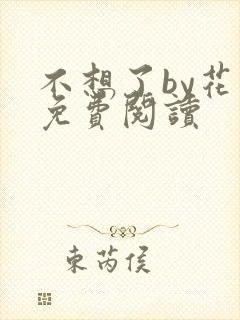 不想了by花
免費閱讀
東芮侯